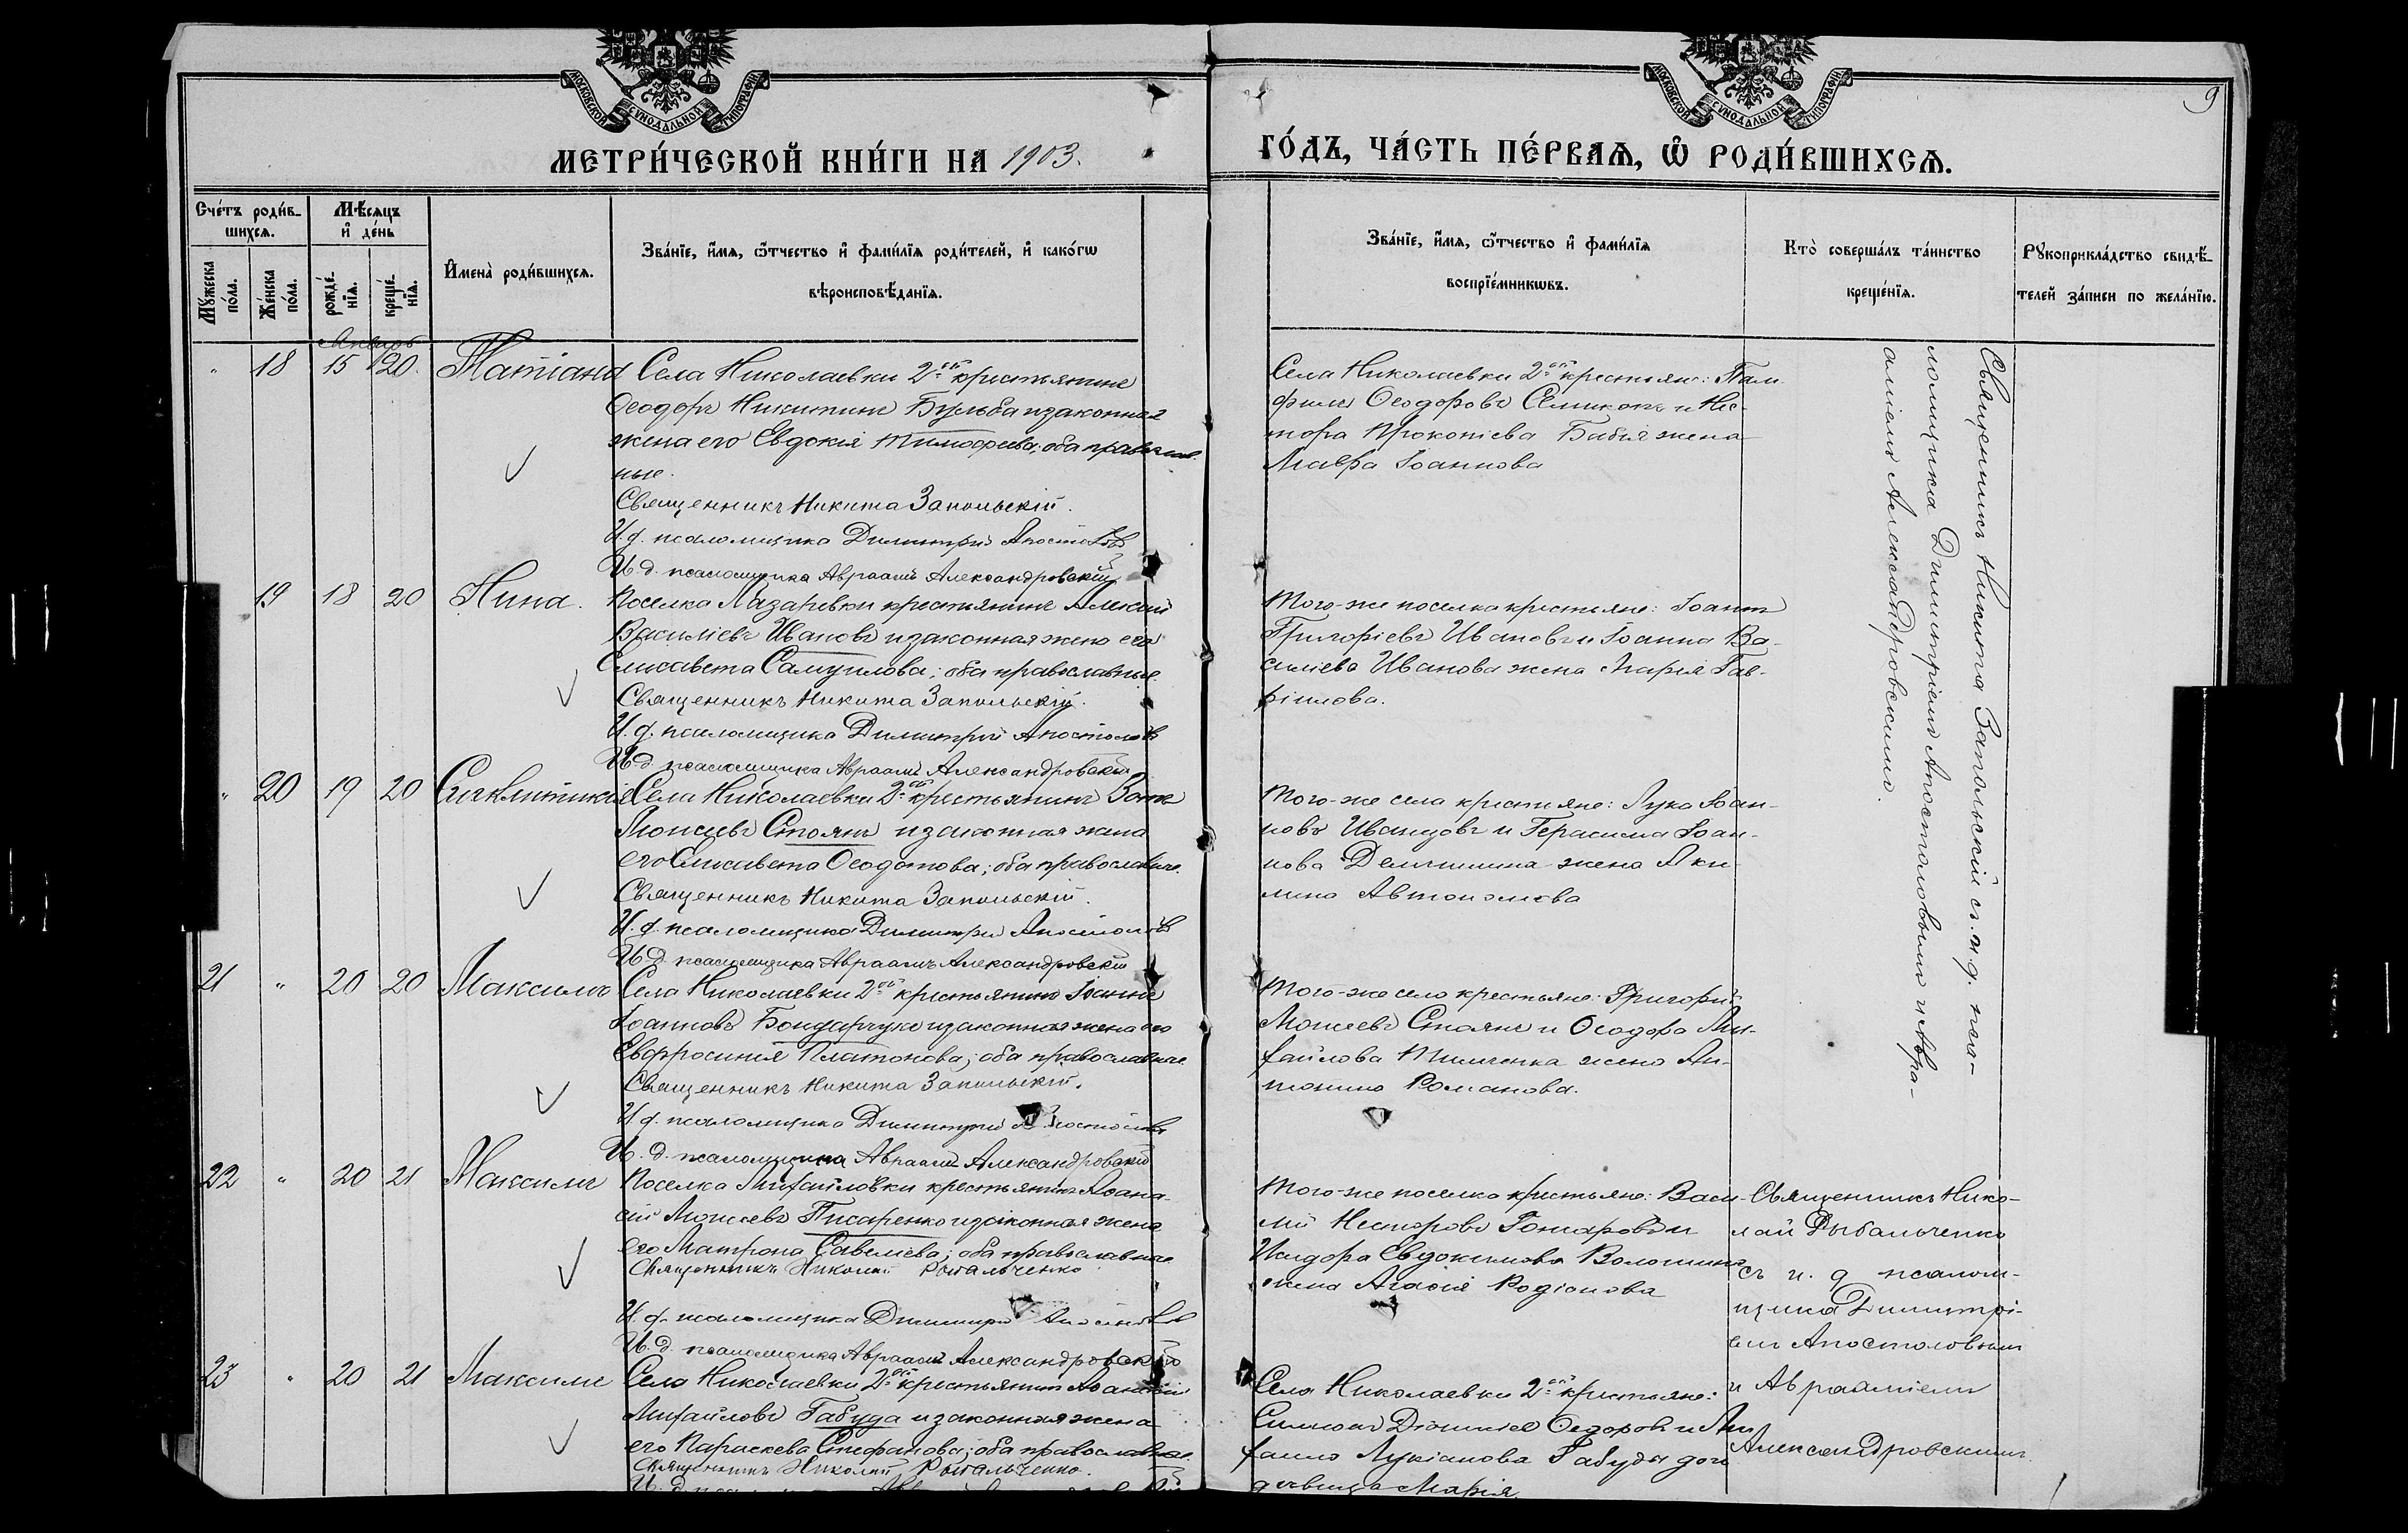 МОСКОВСКОЙ СѴНОДАЛЬНОЙ ТИПОГРАФІИ
МОСКОВСКОЙ СѴНОДАЛЬНОЙ ТИПОГРАФІИ
9
МЕТРИ́ЧЕСКОЙ КНИ́ГИ НА 1903.
ГО́ДЪ, ЧА́СТЬ ПЕ́РВАѦ, Ѽ РОДИ́ВШИХСѦ.
Сче́тъ роди́в-
шихсѧ.
Мꙋ́жеска
по́ла.
Же́нска
по́ла.
Мѣ́сѧцъ
и҆ де́нь
рожде́-
нїѧ.
креще́-
нїѧ.
И҆мена̀ роди́вшихсѧ.
Зва́нїе, и҆́мѧ, ѻ҆́тчество и҆ фами́лїѧ роди́телей, и҆ како́гѡ
вѣроисповѣ́данїѧ.
Зва́нїе, и҆́мѧ, ѻ҆́тчество и҆ фами́лїѧ
воспрїе́мникѡвъ.
Кто̀ соверша́лъ та́инство
креще́нїѧ.
Рꙋкоприкла́дство свидѣ́-
телей за́писи по жела́нїю.
Январь
" 18 15 20. Татіана
Села Николаевки 2-ой крестьянинъ
Ѳеодоръ Никитинъ Бульба и законная
жена его Евдокія Тимоѳеева; оба православ
ные.
Священникъ Никита Запольскій.
И. д. псаломщика Димитрій Апостоловъ
И. д. псаломщика Авраамъ Александровскій
Села Николаевки 2-ой крестьяне: Пам
филъ Ѳеодоровъ Семикопъ и Нес-
тора Прокопіева Бабія жена
Марѳа Іоаннова
Священникъ Никита Запольскій съ и. д. пса-
ломщика Димитріемъ Апостоловымъ и Авра-
аміемъ Александровскимъ.
19 18 20 Нина.
Поселка Лазаревки крестьянинъ Алексій
Василіевъ Ивановъ и законная жена его
Елисавета Самуилова; оба православные.
Священникъ Никита Запольскій.
И. д. псаломщика Димитрій Апостоловъ
И. д. псаломщика Авраамъ Александровскій
Того-же поселка крестьяне: Іоаннъ
Григоріевъ Ивановъ и Іоанна Ва-
силіева Иванова жена Марія Гав-
ріилова.
" 20 19 20 Синклитикія
Села Николаевки 2-ой крестьянинъ
Моисеевъ Стоянъ и законная жена
его Елисавета Ѳеодотова; оба православные.
Священникъ Никита Запольскій.
И. д. псаломщика Димитрій Апостоловъ
И. д. псаломщика Авраамъ Александровскій
Того-же села крестьяне: Лука Іоан-
новъ Иванцовъ и Герасима Іоан-
нова жена Аки-
лина Автономова
21 " 20 20 Максимъ
Села Николаевки 2-ой крестьянинъ Іоаннъ
Іоанновъ Бондарчукъ и законная жена его
Евфросинія Платонова; оба православные.
Священникъ Никита Запольскій.
И. д. псаломщика Димитрій Апостоловъ
И. д. псаломщика Авраамъ Александровскій
Того-же села крестьяне: Григорій
Моисеевъ Стоянъ и Ѳеодора Ми-
хайлова жена Ан-
тонина Романова.
22 " 20 21 Максимъ
Поселка Михайловки крестьянинъ Аѳана-
сій Моисеевъ Писаренко и законная жена
его Матрона Савеліева; оба православные
Священникъ Николай Рыбальченко
И. д. псаломщика Димитрій Апостоловъ
И. д. псаломщика Авраамъ Александровскій
Того-же поселка крестьяне: Васи-
лій Несторовъ Гончаровъ и
Исидора Евдокимова Волошина
жена Агаѳія Родіонова
Священникъ Нико-
лай Рыбальченко
съ и. д псалом-
щика Димитрі-
емъ Апостоловымъ
и Авраамiемъ
Александровскимъ.
23 " 20 21 Максимъ
Села Николаевки 2-ой крестьянинъ Аѳанасій
Михайловъ Габуда и законная жена
его Параскева Стефанова; оба православные.
Священникъ Николай Рыбальченко.
Села Николаевки 2-ой крестьяне:
Симеонъ Ѳедоровъ и Ми
хаила Лукіанова Габуды дочь
девица Марія.